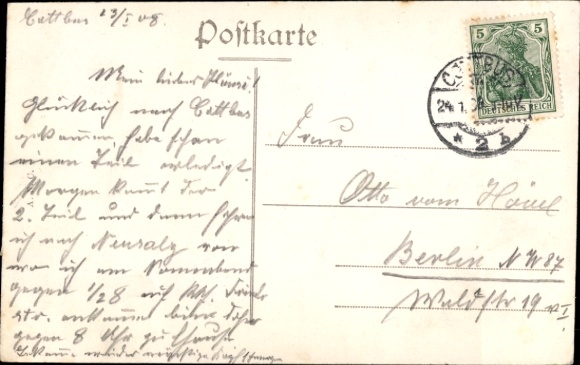 Cottbus 23/I 08.
Postkarte
Mein lieber
Glücklich nach Cottbus
gekommen habe schon
einen Teil erledigt.
Morgen kommt der
2. Teil und dann fahre
ich nach Neusalz von
wo ich am Sonnabend
gegen 1/2 8 auf Bhf. Friedr
str. ankomme also
gegen 8 Uhr zu Hause
5
DEUTSCHES REICH
COTTBUS
24.1.08
* 2 b
Frau
Otto vom Hövel
Berlin NW 87
Waldstr 19 VI